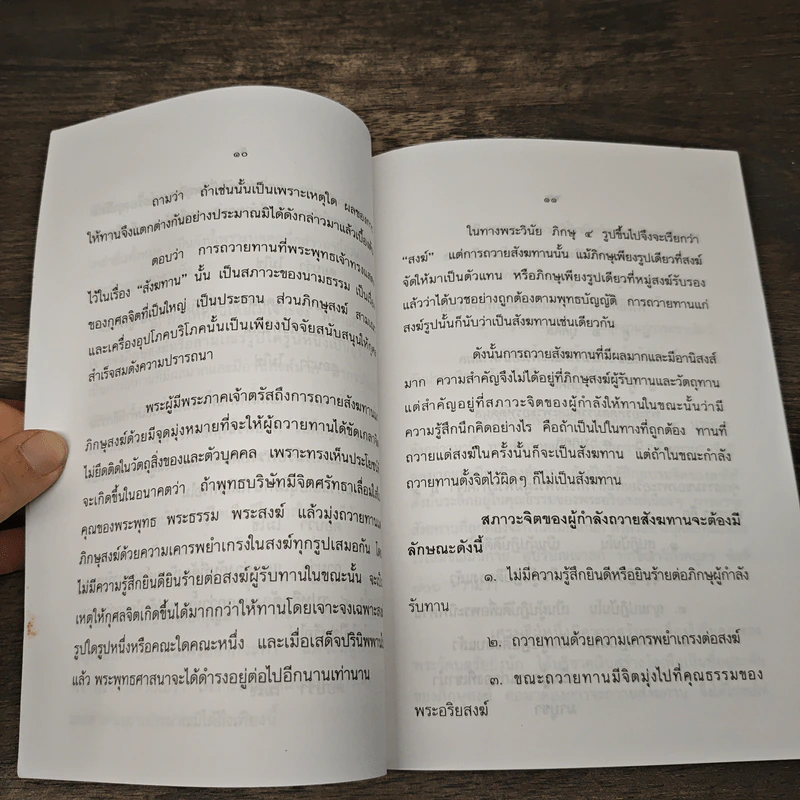 ๑๐
ถามว่า ถ้าเช่นนั้นเป็นเพราะเหตุใด ผลของการ
ให้ทานจึงแตกต่างกันอย่างประมาณมิได้ดังกล่าวมาแล้วเบื้องต้น
ตอบว่า การถวายทานที่พระพุทธเจ้าทรงแสดง
ไว้ในเรื่อง “สังฆทาน” นั้น เป็นสภาวะของนามธรรม เป็นเรื่อง
ของกุศลจิตที่เป็นใหญ่ เป็นประธาน ส่วนภิกษุสงฆ์
และเครื่องอุปโภคบริโภคนั้นเป็นเพียงปัจจัยสนับสนุนให้
สำเร็จสมดังความปรารถนา
พระผู้มีพระภาคเจ้าตรัสถึงการถวายสังฆทาน
ภิกษุสงฆ์ด้วยมีจุดมุ่งหมายที่จะให้ผู้ถวายทานได้ขัดเกลา
ไม่ยึดติดในวัตถุสิ่งของและตัวบุคคล เพราะทรงเห็นประโยชน์
จะเกิดขึ้นในอนาคตว่า ถ้าพุทธบริษัทมีจิตศรัทธาเลื่อมใส
คุณของพระพุทธ พระธรรม พระสงฆ์ แล้วมุ่งถวายทาน
ภิกษุสงฆ์ด้วยความเคารพยำเกรงในสงฆ์ทุกรูปเสมอกัน
ไม่มีความรู้สึกยินดียินร้ายต่อสงฆ์ผู้รับทานในขณะนั้น
เหตุให้กุศลจิตเกิดขึ้นได้มากกว่าให้ทานโดยเจาะจงเฉพาะ
รูปใดรูปหนึ่งหรือคณะใดคณะหนึ่ง และเมื่อเสด็จปรินิพพาน
แล้ว พระพุทธศาสนาจะได้ดำรงอยู่ต่อไปอีกนานเท่านาน
๑๑
ในทางพระวินัย ภิกษุ ๔ รูปขึ้นไปจึงจะเรียกว่า
“สงฆ์” แต่การถวายสังฆทานนั้น แม้ภิกษุเพียงรูปเดียวที่สงฆ์
จัดให้มาเป็นตัวแทน หรือภิกษุเพียงรูปเดียวที่หมู่สงฆ์รับรอง
แล้วว่าได้บวชอย่างถูกต้องตามพุทธบัญญัติ การถวายทานแก่
สงฆ์รูปนั้นก็นับว่าเป็นสังฆทานเช่นเดียวกัน
ดังนั้นการถวายสังฆทานที่มีผลมากและมีอานิสงส์
มาก ความสำคัญจึงไม่ได้อยู่ที่ภิกษุสงฆ์ผู้รับทานและวัตถุทาน
แต่สำคัญอยู่ที่สภาวะจิตของผู้กำลังให้ทานในขณะนั้นว่ามี
ความรู้สึกนึกคิดอย่างไร คือถ้าเป็นไปในทางที่ถูกต้อง ทานที่
ถวายแด่สงฆ์ในครั้งนั้นก็จะเป็นสังฆทาน แต่ถ้าในขณะกำลัง
ถวายทานตั้งจิตไว้ผิดๆ ก็ไม่เป็นสังฆทาน
สภาวะจิตของผู้กำลังถวายสังฆทานจะต้องมี
ลักษณะดังนี้
๑. ไม่มีความรู้สึกยินดีหรือยินร้ายต่อภิกษุผู้กำลัง
รับทาน
๒. ถวายทานด้วยความเคารพยำเกรงต่อสงฆ์
๓. ขณะถวายทานมีจิตมุ่งไปที่คุณธรรมของ
พระอริยสงฆ์